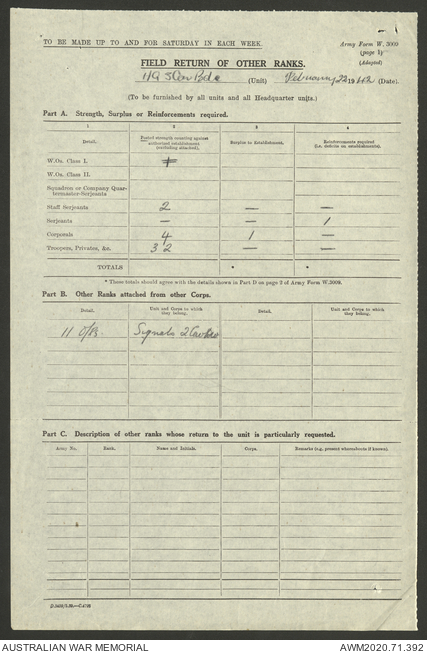 TO BE MADE UP TO AND FOR SATURDAY IN EACH WEEK.
Army Form W. 3009
(page 1)
(Adapted)
FIELD RETURN OF OTHER RANKS.
HQ Cav Bde (Unit) February 22 1942 (Date).
(To be furnished by all units and all Headquarter units.)
Part A. Strength, Surplus or Reinforcements required.
1 2 3 4
Detail. Posted strength counting against authorized establishment (excluding attached). Surplus to Establishment. Reinforcements required (i.e. deficits on establishments).
W.Os. Class I.
W.Os. Class II.
Squadron or Company Quar-
termaster-Serjeants
Staff Serjeants 2 — —
Serjeants — — 1
Corporals 4 1 —
Troopers, Privates, &c. 32 — —
TOTALS * *
* These totals should agree with the details shown in Part D on page 3 of Army Form W.3009.
Part B. Other Ranks attached from other Corps.
Detail. Unit and Corps to which they belong. Detail. Unit and Corps to which they belong.
11 O/Rs Signals 2 Cav Bde
Part C. Description of other ranks whose return to the unit is particularly requested.
Army No. Rank. Name and Initials. Corps. Remarks (e.g., present whereabouts if known).
AUSTRALIAN WAR MEMORIAL
AWM2020.71.392